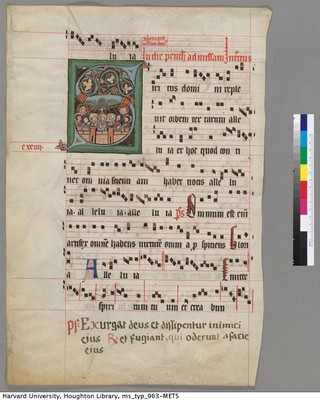 lu ia In die penth ad missam Introitus
ri tus domi ni reple
vit orbem ter rarum alle
lu ia et hoc quod con ti
net om nia scienti am habet vocis alle lu
ia al lelu ia alle lu ia ps Omnium est enim
artifex omnem habens virtutem omnia
a A lle lu ia Emitte
spiri tum tu um et crea bun
ps Exurgat deus et dissipentur inimici
eius R et fugiant, qui oderunt a facie
eius
Harvard University, Houghton Library, ms_typ_963-METS